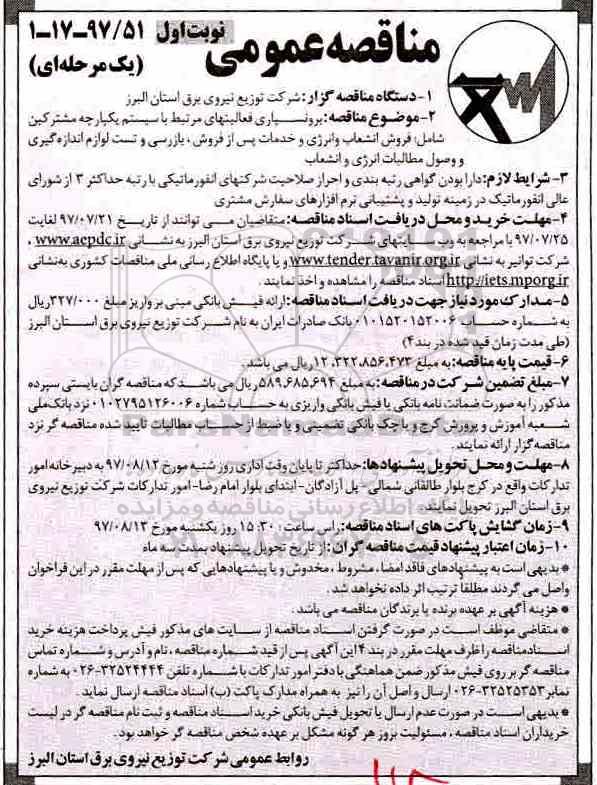 مناقصه عمومی
نوبت اول ۹۷/۵۱-۱۷-۱
(یک مرحله‌ای)
۱- دستگاه مناقصه گزار: شرکت توزیع نیروی برق استان البرز
۲- موضوع مناقصه: برونسپاری فعالیتهای مرتبط با سیستم یکپارچه مشترکین
شامل: فروش انشعاب وانرژی و خدمات پس از فروش، بازرسی و تست لوازم اندازه‌گیری
و وصول مطالبات انرژی و انشعاب
۳- شرایط لازم: دارا بودن گواهی رتبه بندی و احراز صلاحیت شرکتهای انفورماتیکی با رتبه حداکثر ۳ از شورای
عالی انفورماتیک در زمینه تولید و پشتیبانی نرم افزارهای سفارش مشتری
۴- مهلت خرید و محل دریافت اسناد مناقصه: متقاضیان می توانند از تاریخ ۹۷/۰۷/۲۱ لغایت
۹۷/۰۷/۲۵ با مراجعه به وب سایتهای شرکت توزیع نیروی برق استان البرز به نشانی www.aepdc.ir ،
شرکت توانیر به نشانی www.tender.tavanir.org.ir و یا پایگاه اطلاع رسانی ملی مناقصات کشوری به‌نشانی
http://iets.mporg.ir اسناد مناقصه را مشاهده و اخذ نمایند.
۵- مدارک مورد نیاز جهت دریافت اسناد مناقصه: ارائه فیش بانکی مبنی بر واریز مبلغ ۳۲۷/۰۰۰ ریال
به شماره حساب ۰۱۰۱۵۲۰۱۵۲۰۰۶ بانک صادرات ایران به نام شرکت توزیع نیروی برق استان البرز
(طی مدت زمان قید شده در بند۴)
۶- قیمت پایه مناقصه: به مبلغ ۱۲،۳۲۲،۸۵۶،۴۷۳ ریال می باشد.
۷- مبلغ تضمین شرکت در مناقصه: به مبلغ ۵۸۹،۶۸۵،۶۹۴ ریال می باشد که مناقصه گران بایستی سپرده
مذکور را به صورت ضمانت نامه بانکی یا فیش بانکی واریزی به حساب شماره ۰۱۰۲۷۹۵۱۲۶۰۰۶ نزد بانک ملی
شعبه آموزش و پرورش کرج و یا چک بانکی تضمینی و یا ضبط از حساب مطالبات تایید شده مناقصه گر نزد
مناقصه گزار ارائه نمایند.
۸- مهلت و محل تحویل پیشنهادها: حداکثر تا پایان وقت اداری روز شنبه مورخ ۹۷/۰۸/۱۲ به دبیرخانه امور
تدارکات واقع در کرج بلوار طالقانی شمالی- پل آزادگان- ابتدای بلوار امام رضا- امور تدارکات شرکت توزیع نیروی
برق استان البرز تحویل نمایند.
۹- زمان گشایش پاکت های اسناد مناقصه: راس ساعت ۱۵:۳۰ روز یکشنبه مورخ ۹۷/۰۸/۱۳
۱۰- زمان اعتبار پیشنهاد قیمت مناقصه گران: از تاریخ تحویل پیشنهاد بمدت سه ماه
* بدیهی است به پیشنهادهای فاقد امضاء، مشروط، مخدوش و یا پیشنهادهایی که پس از مهلت مقرر در این فراخوان
واصل می گردند مطلقاً ترتیب اثر داده نخواهد شد.
* هزینه آگهی بر عهده برنده یا برندگان مناقصه می باشد.
* متقاضی موظف است در صورت گرفتن اسناد مناقصه از سایت های مذکور فیش پرداخت هزینه خرید
اسنادمناقصه را ظرف مهلت مقرر در بند ۴ این آگهی پس از قید شماره مناقصه، نام و آدرس و شماره تماس
مناقصه گر بر روی فیش مذکور ضمن هماهنگی با دفتر امور تدارکات با شماره تلفن ۳۲۵۲۴۴۴۴-۰۲۶ به شماره
نمابر ۳۲۵۲۵۳۵۳-۰۲۶ ارسال و اصل آن را نیز به همراه مدارک پاکت (ب) اسناد مناقصه ارسال نماید.
* بدیهی است در صورت عدم ارسال یا تحویل فیش بانکی خرید اسناد مناقصه و ثبت نام مناقصه گر در لیست
خریداران اسناد مناقصه، مسئولیت بروز هر گونه مشکل بر عهده شخص مناقصه گر خواهد بود.
روابط عمومی شرکت توزیع نیروی برق استان البرز